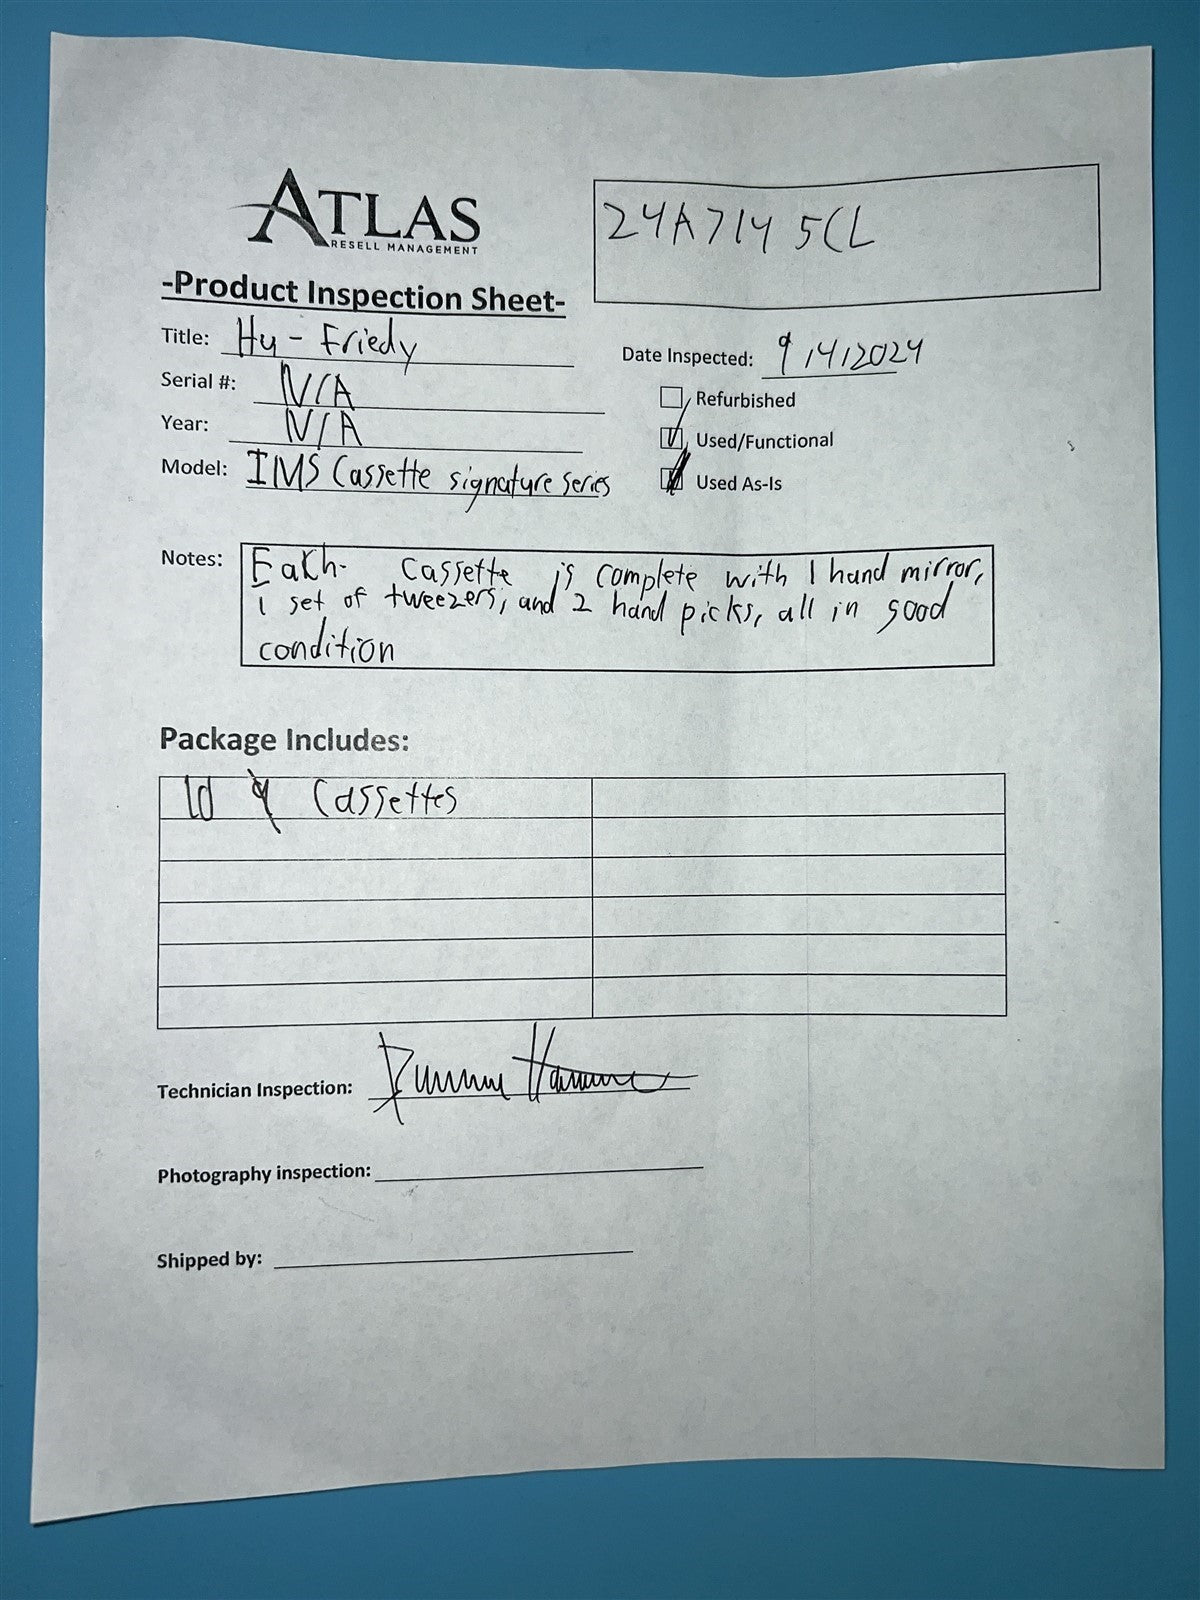 ATLAS
RESELL MANAGEMENT
24A714 5CL
-Product Inspection Sheet-
Title: Hu-Friedy
Date Inspected: 9/4/2024
Serial #: N/A
Refurbished
Year: N/A
Used/Functional
Model: IMS Cassette signature series
Used As-Is
Notes: Each cassette is complete with 1 hand mirror,
1 set of tweezers, and 2 hand picks, all in good
condition
Package Includes:
10 Cassettes
Technician Inspection:
Photography inspection:
Shipped by: